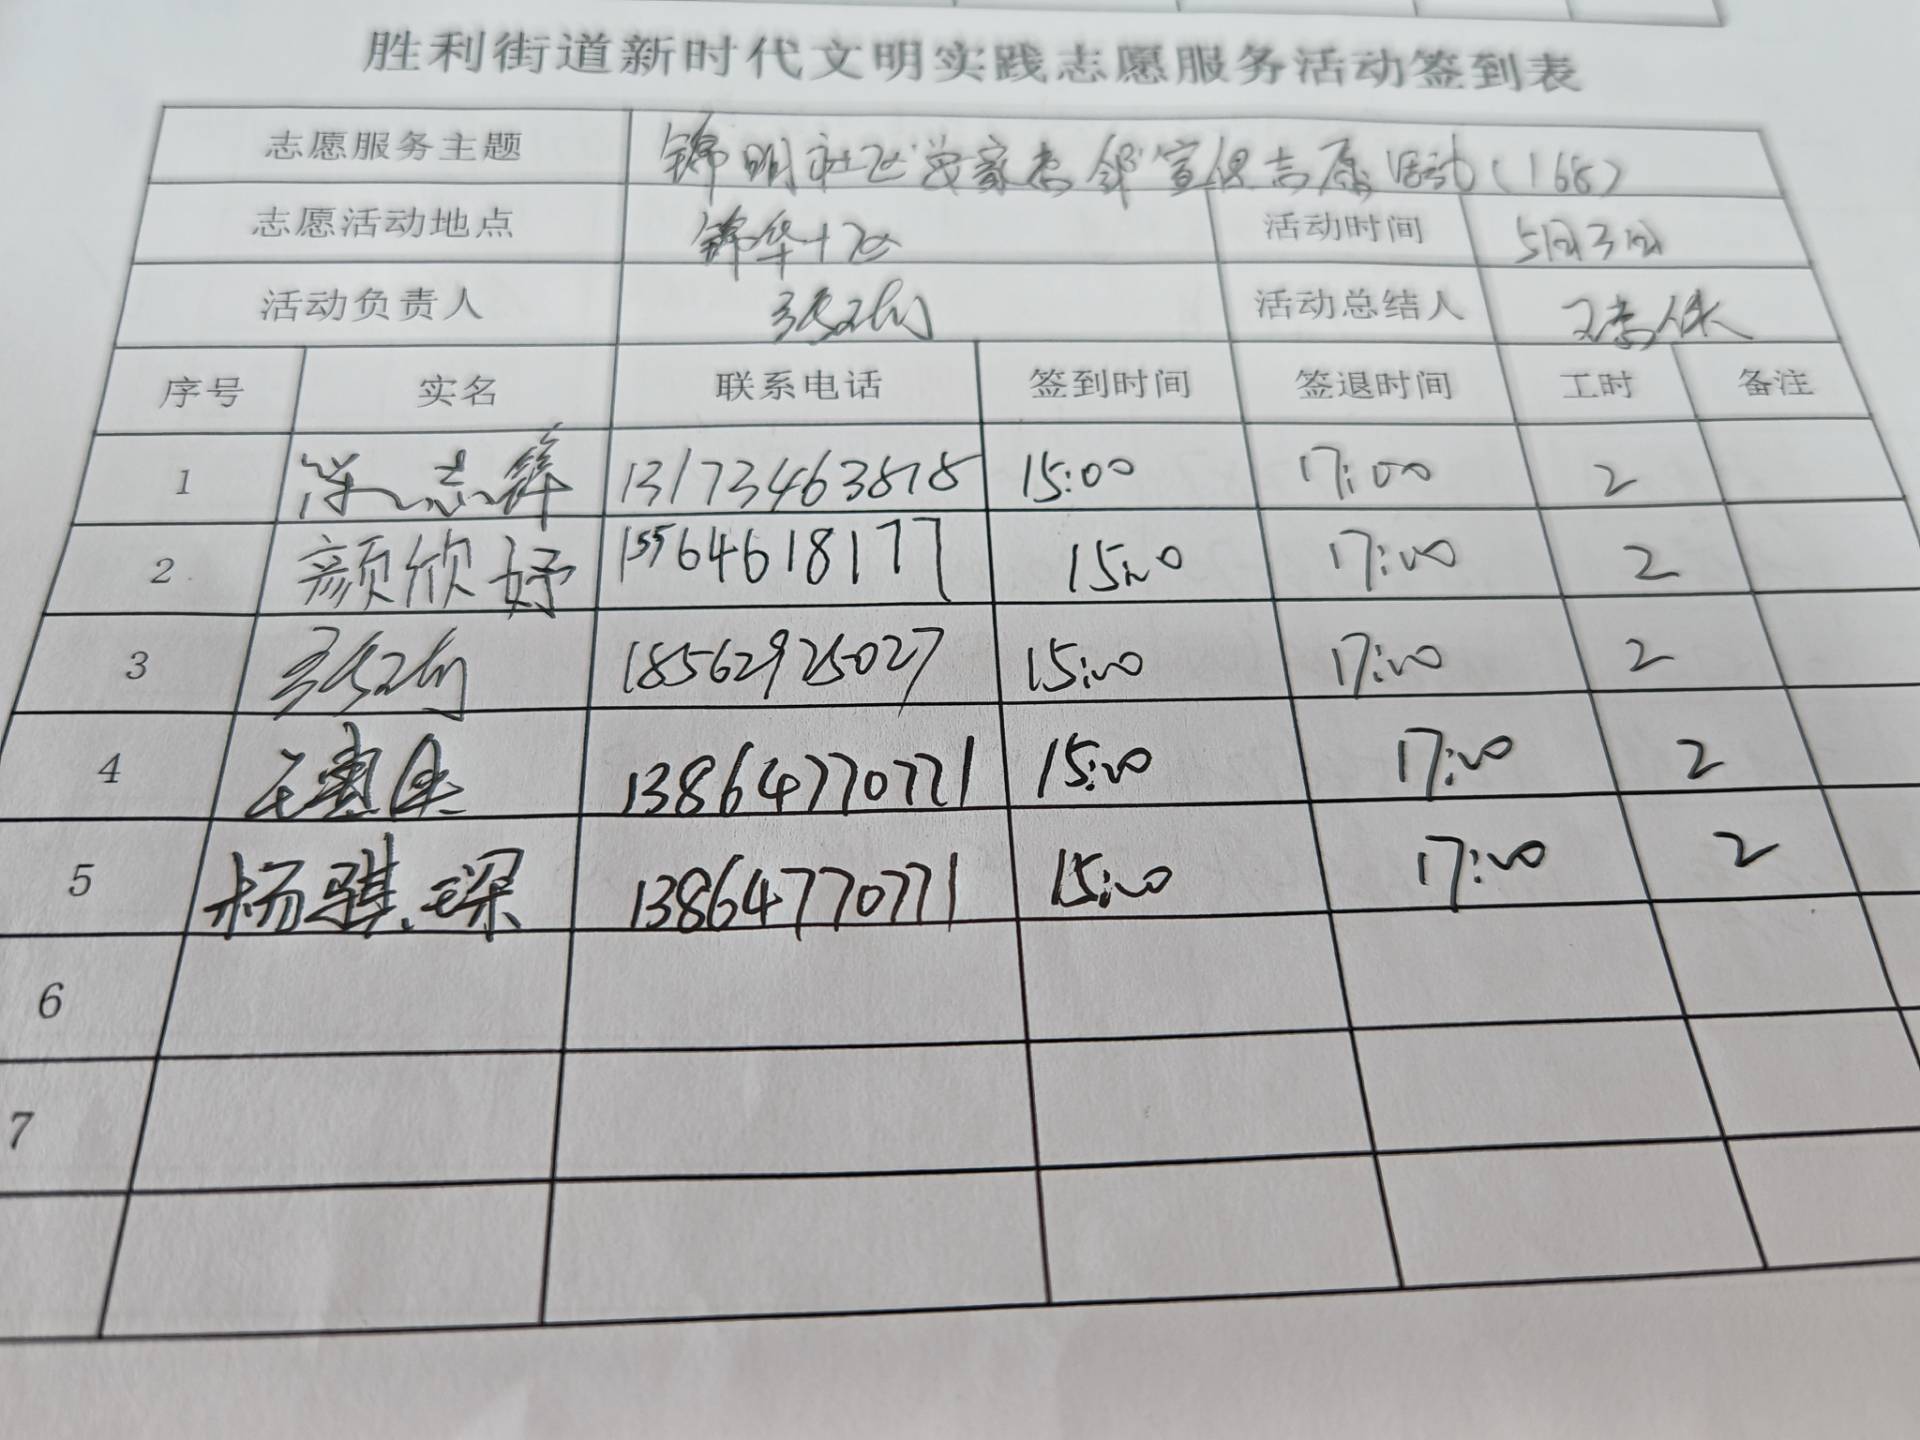 胜利街道新时代文明实践志愿服务活动签到表
志愿服务主题 锦明社区 宣传志愿活动(168)
志愿活动地点 锦华十区 活动时间 5月3日
活动负责人 活动总结人
序号 实名 联系电话 签到时间 签退时间 工时 备注
1 志锋 13173463878 15:00 17:00 2
2 颜欣妤 15564618177 15:00 17:00 2
3 18562925027 15:00 17:00 2
4 13864770771 15:00 17:00 2
5 杨骐琛 13864770771 15:00 17:00 2
6
7